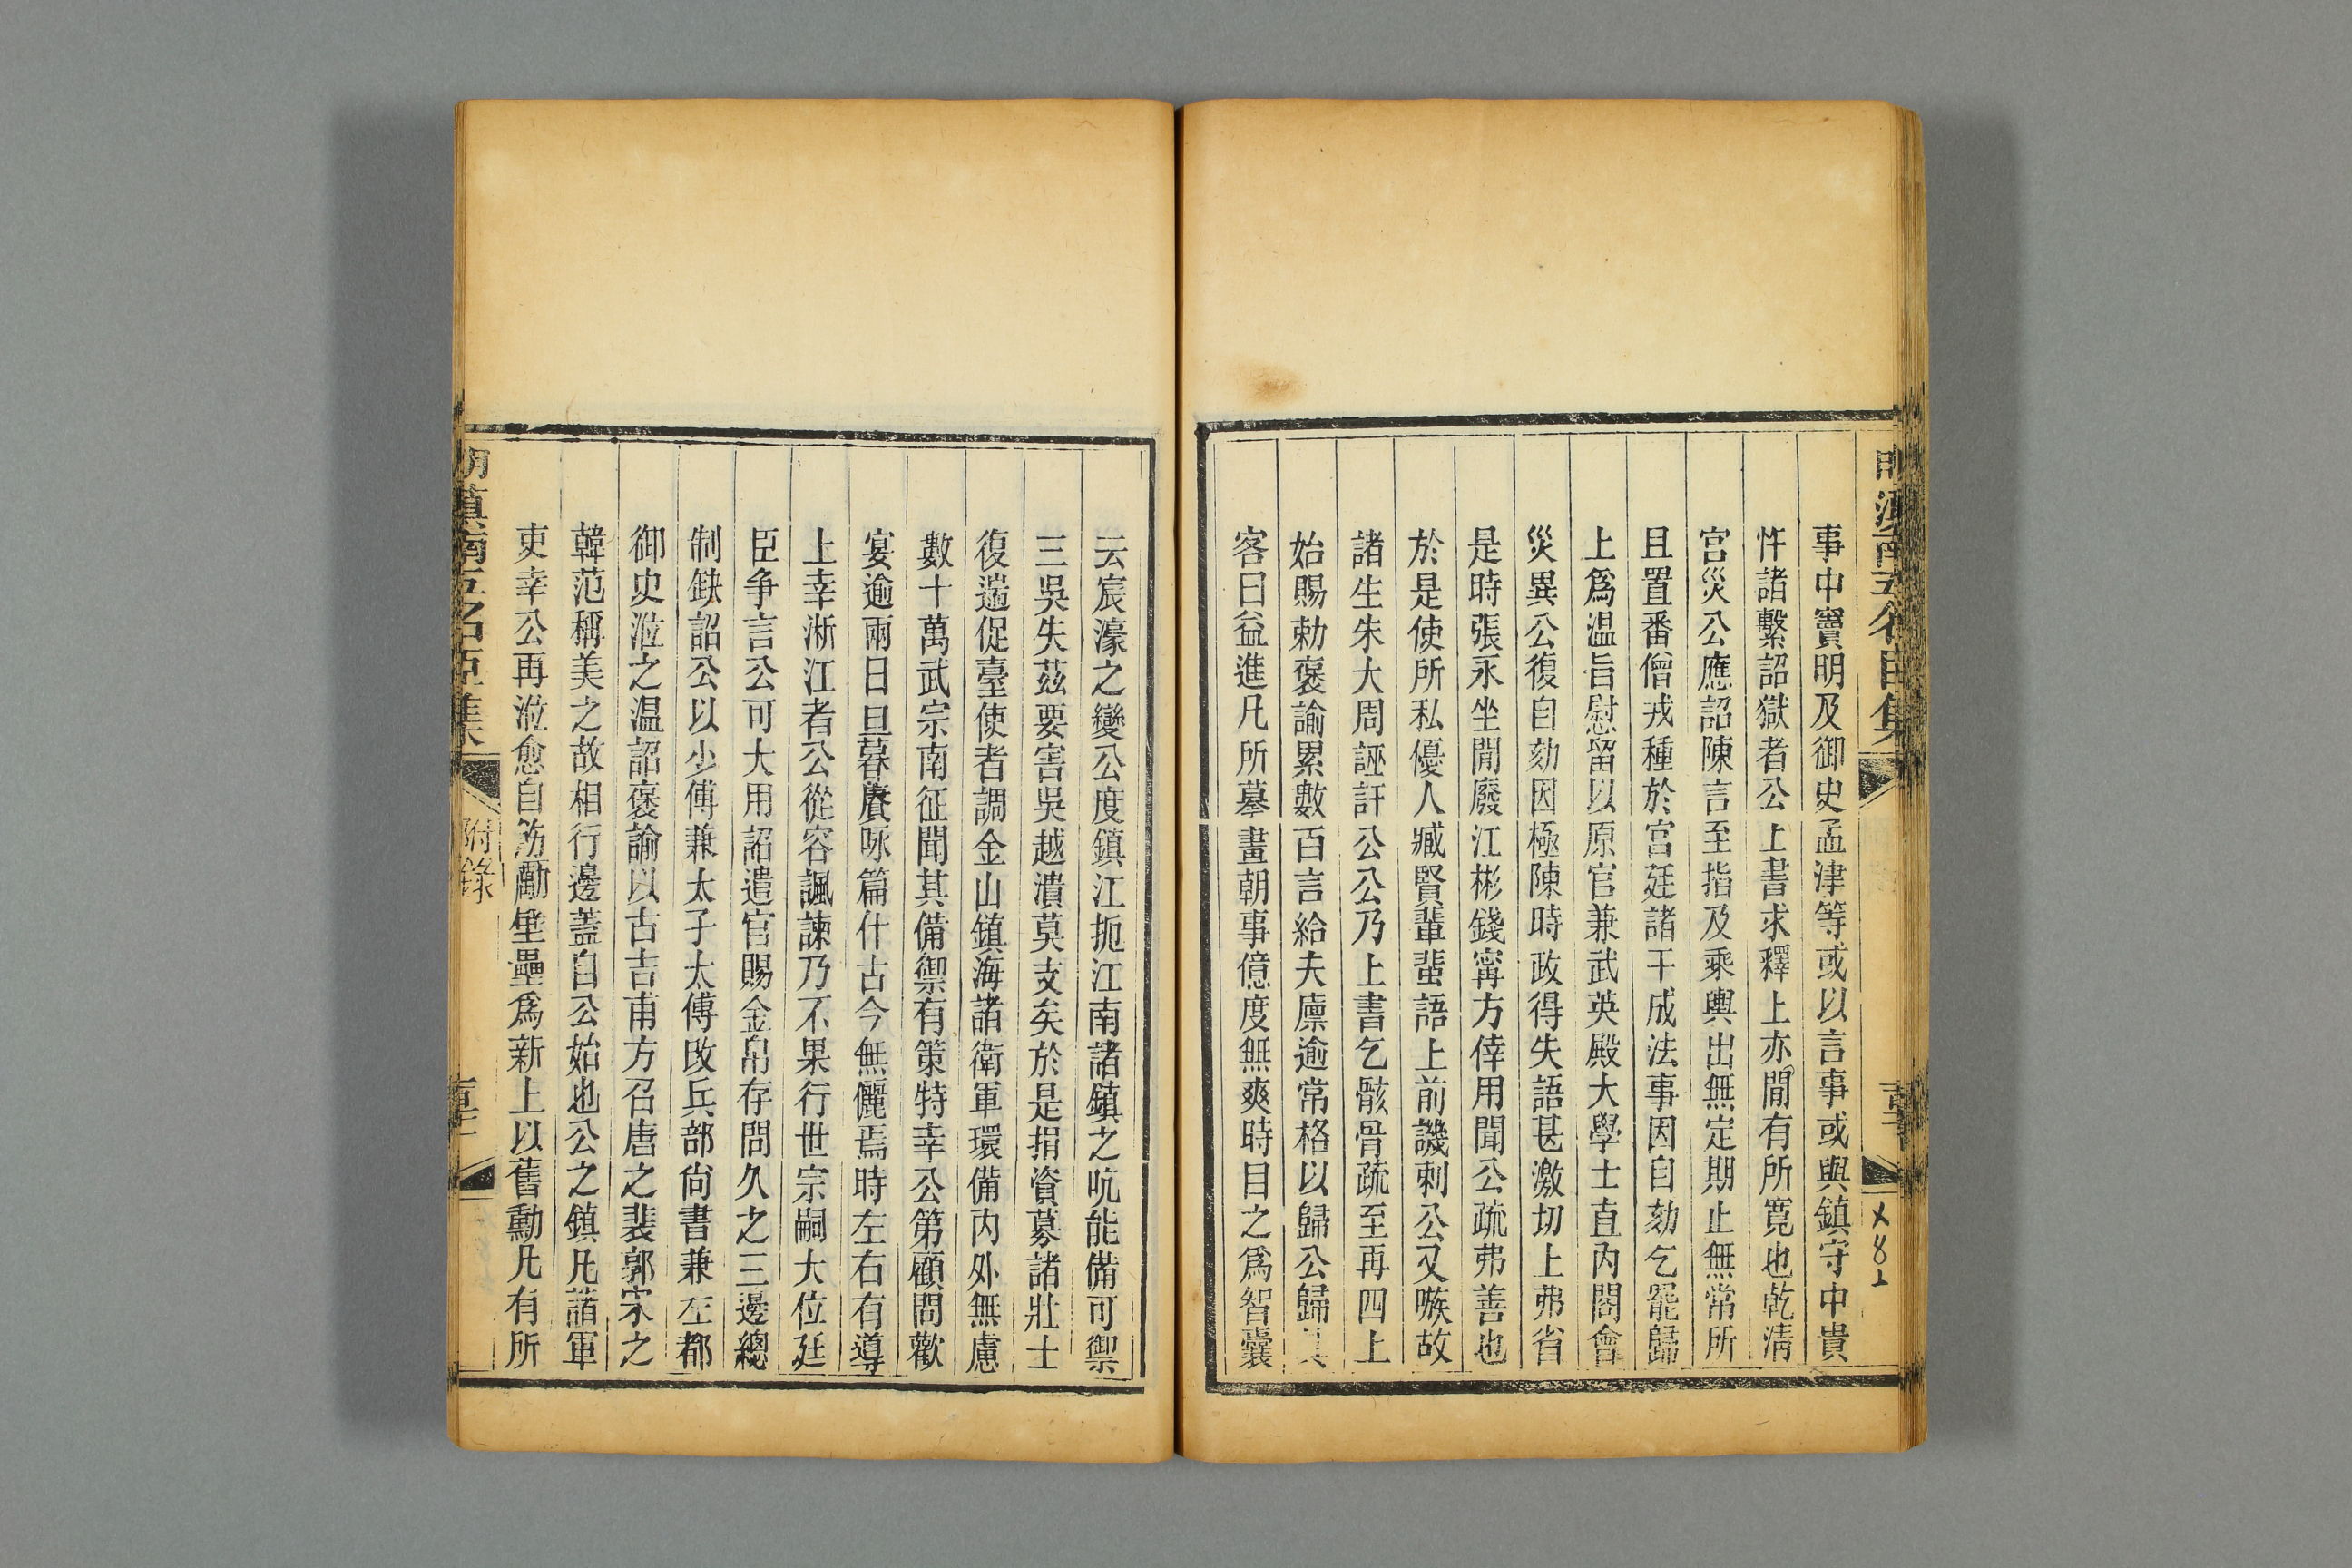 事中竇明及御史孟津等或以言事或與鎮守中貴
忤諸繫詔獄者公上書求釋上亦閒有所寬也乾淸
宮災公應詔陳言至指及乘輿出無定期止無常所
且置番僧戎種於宮廷諸干成法事因自劾乞罷歸
上爲温旨慰留以原官兼武英殿大學士直內閣會
災異公復自劾因極陳時政得失語甚激切上弗省
是時張永坐閒廢江彬錢寧方倖用聞公疏弗善也
於是使所私優人臧賢輩蜚語上前譏刺公又嗾故
諸生朱大周誣訐公公乃上書乞骸骨疏至再四上
始賜勅褒諭累數百言給夫廩逾常格以歸公歸
客日益進凡所摹畫朝事億度無爽時目之爲智囊
云宸濠之變公度鎮江扼江南諸鎮之吭能備可禦
三吳失茲要害吳越潰莫支矣於是捐資募諸壯士
復遄促臺使者調金山鎮海諸衛軍環備內外無慮
數十萬武宗南征聞其備禦有策特幸公第顧問歡
宴逾兩日旦暮賡咏篇什古今無儷焉時左右有導
上幸淛江者公從容諷諫乃不果行世宗嗣大位廷
臣争言公可大用詔遣官賜金帛存問久之三邊總
制缺詔公以少傅兼太子太傅改兵部尙書兼左都
御史涖之温詔褒諭以古吉甫方召唐之裴郭宋之
韓范稱美之故相行邊蓋自公始也公之鎮凡諸軍
吏幸公再涖愈自飭勵壁壘爲新上以舊勳凡有所
明滇南五名臣集
附錄